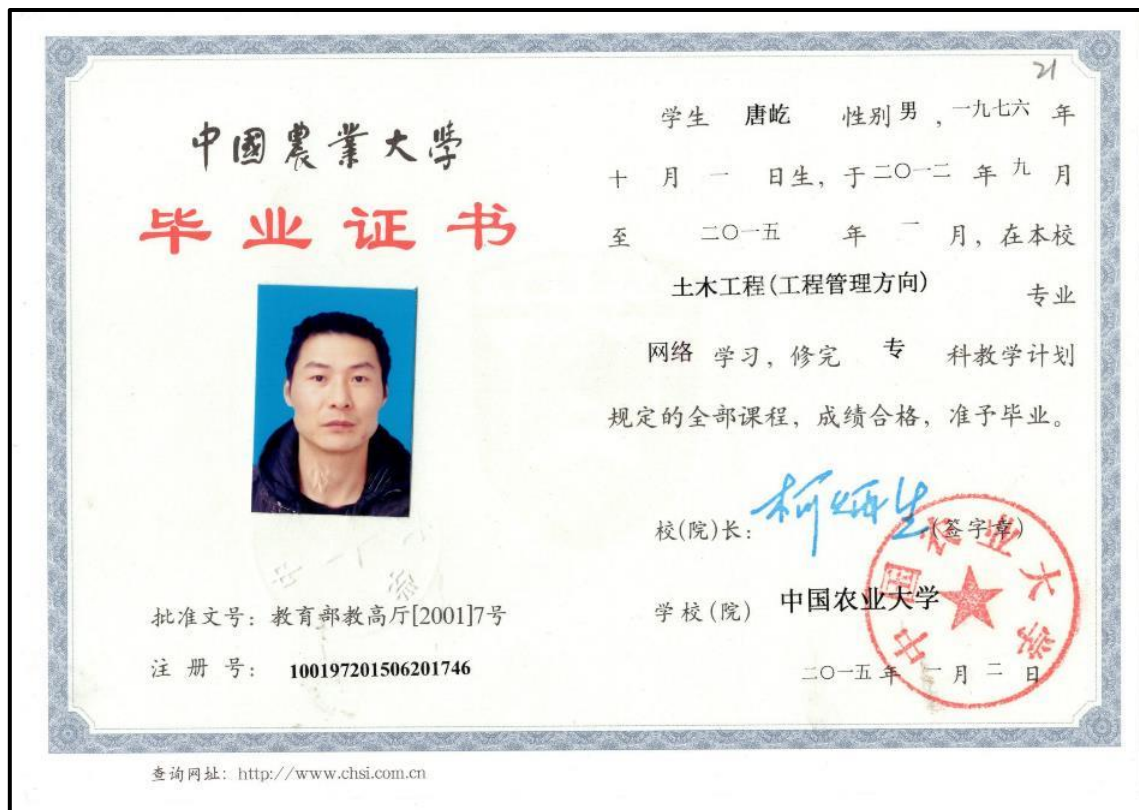 21
中國農業大學
毕业证书
批准文号：教育部教高厅[2001]7号
注 册 号： 100197201506201746
学生 唐屹 性别 男 , 一九七六 年
十 月 一 日生, 于 二〇一二 年 九 月
至 二〇一五 年 一 月, 在本校
土木工程(工程管理方向) 专业
网络 学习, 修完 专 科教学计划
规定的全部课程, 成绩合格, 准予毕业。
校(院)长: 柯炳生 (签字章)
学校(院) 中国农业大学
中国农业大学
二〇一五 年 一 月 二 日
查询网址: http://www.chsi.com.cn